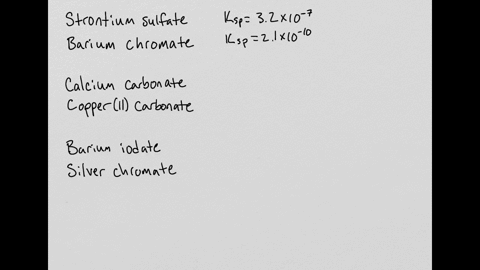 Strontium sulfate Ksp = 3.2×10⁻⁷
Barium chromate Ksp = 2.1×10⁻¹⁰
Calcium carbonate
Copper(II) Carbonate
Barium iodate
Silver chromate